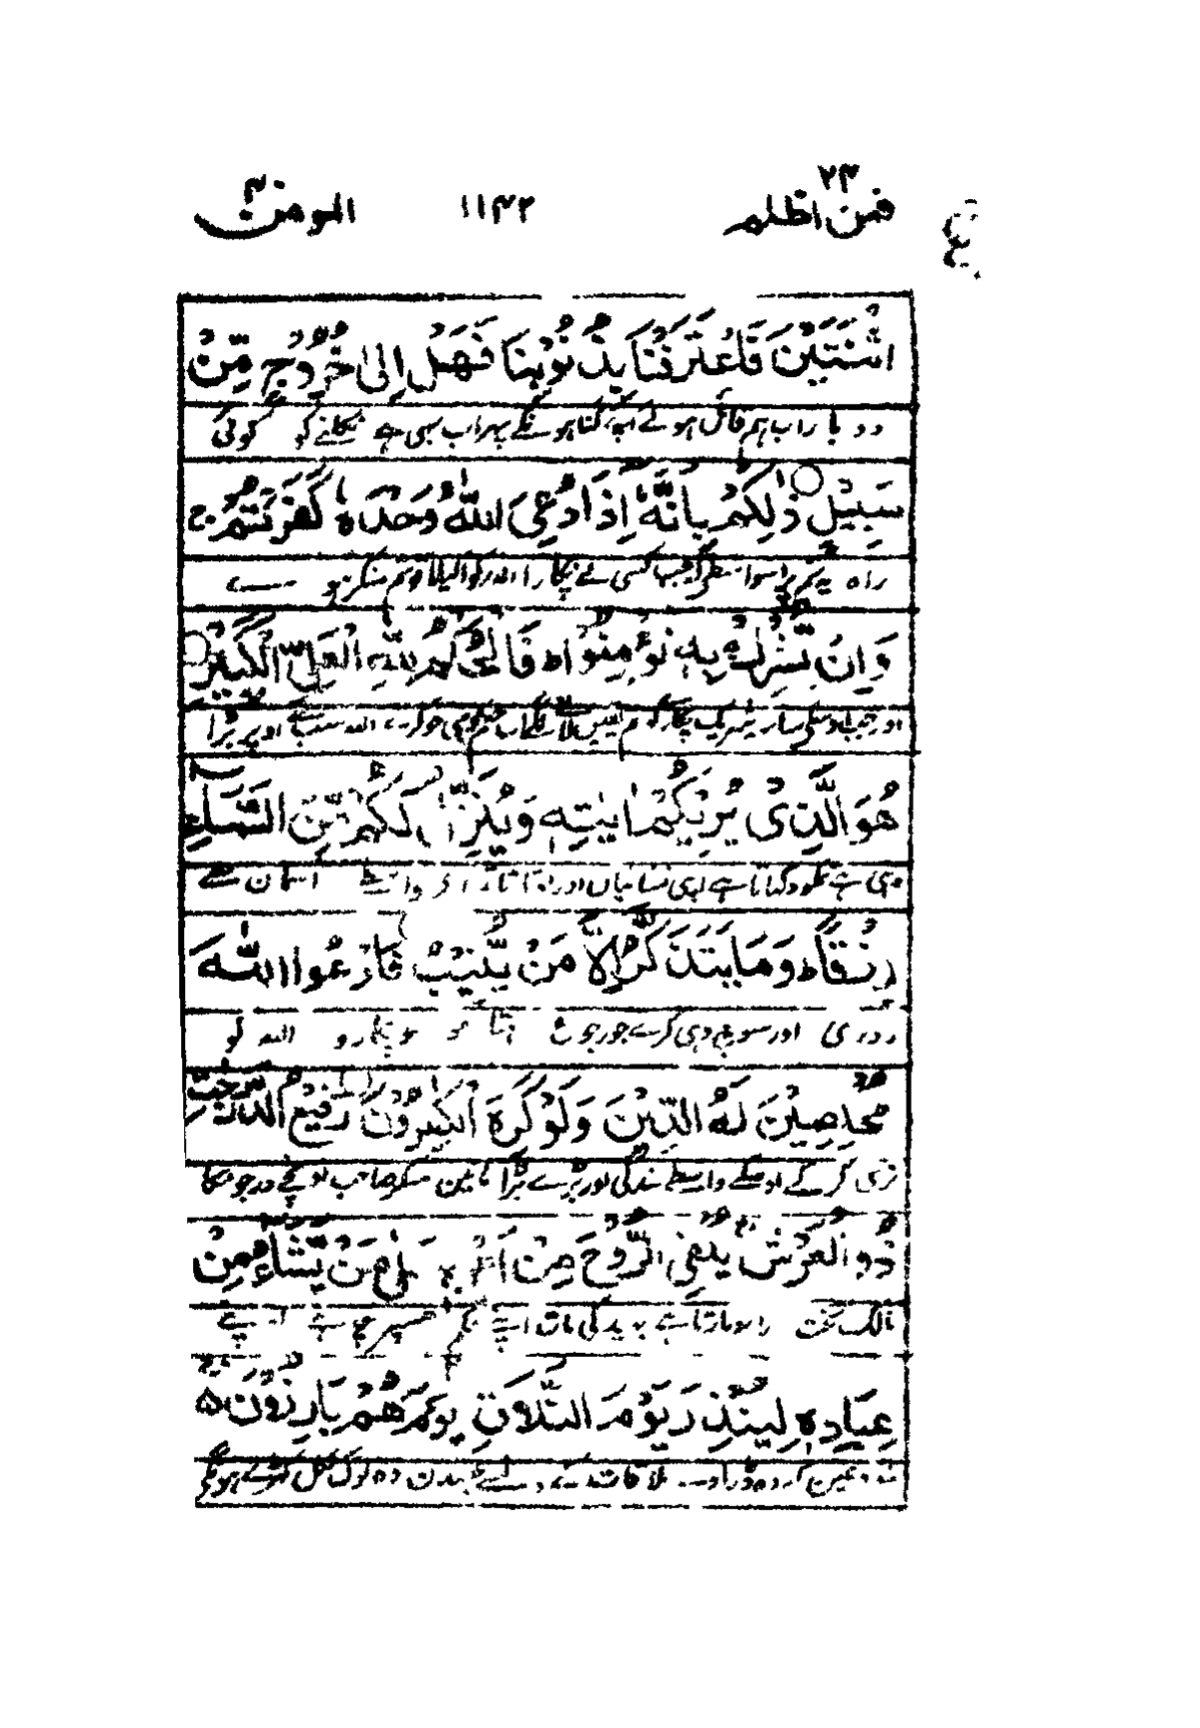 فمن اظلم ۲۴ ۱۱۴۲ المومن ۴۰
اثْنَتَيْنِ فَاعْتَرَفْنَا بِذُنُوْبِنَا فَهَلْ اِلٰى خُرُوْجٍ مِّنْ
اب ہم قائل ہوئے اپنے گناہونکے پہر اب بہی ہے نکلنے کو کوئی
سَبِيْلٍ ذٰلِكُمْ بِاَنَّهٗ اِذَا دُعِيَ اللّٰهُ وَحْدَهٗ كَفَرْتُمْ ج
راہ یہ تم پر اسواسطے کہ جب کسی نے پکارا اللہ کو اکیلا تو تم منکر ہو
وَاِنْ يُّشْرَكْ بِهٖ تُؤْمِنُوْا ط فَالْحُكْمُ لِلّٰهِ الْعَلِيِّ الْكَبِيْرِ
اور جب شریک پکارے اللہ سب سے اوپر بڑا
هُوَ الَّذِيْ يُرِيْكُمْ اٰيٰتِهٖ وَيُنَزِّلُ لَكُمْ مِّنَ السَّمَآءِ
وہی ہے تمکو دکہاتا ہے اپنی نشانیاں اور اتارتا واسطے آسمان سے
رِزْقًا ط وَمَا يَتَذَكَّرُ اِلَّا مَنْ يُّنِيْبُ فَادْعُوا اللّٰهَ
روزی اور سوچ وہی کرے جو رجوع ہوتا ہو سو پکارو اللہ کو
مُخْلِصِيْنَ لَهُ الدِّيْنَ وَلَوْ كَرِهَ الْكٰفِرُوْنَ رَفِيْعُ الدَّرَجٰتِ
کر کے اوسکے واسطے بندگی اور پڑے برا مانین منکر صاحب اونچے درجونکا
ذُو الْعَرْشِ يُلْقِي الرُّوْحَ مِنْ اَمْرِهٖ عَلٰى مَنْ يَّشَآءُ مِنْ
مالک تخت کا اوتارتا ہے بہید کی بات اپنے حکم سے جسپر چاہے اپنے
عِبَادِهٖ لِيُنْذِرَ يَوْمَ التَّلَاقِ يَوْمَ هُمْ بَارِزُوْنَ ه
کہ وہ ڈراوے ملاقات کے دن سے جسدن وہ لوگ نکل کہڑے ہونگے